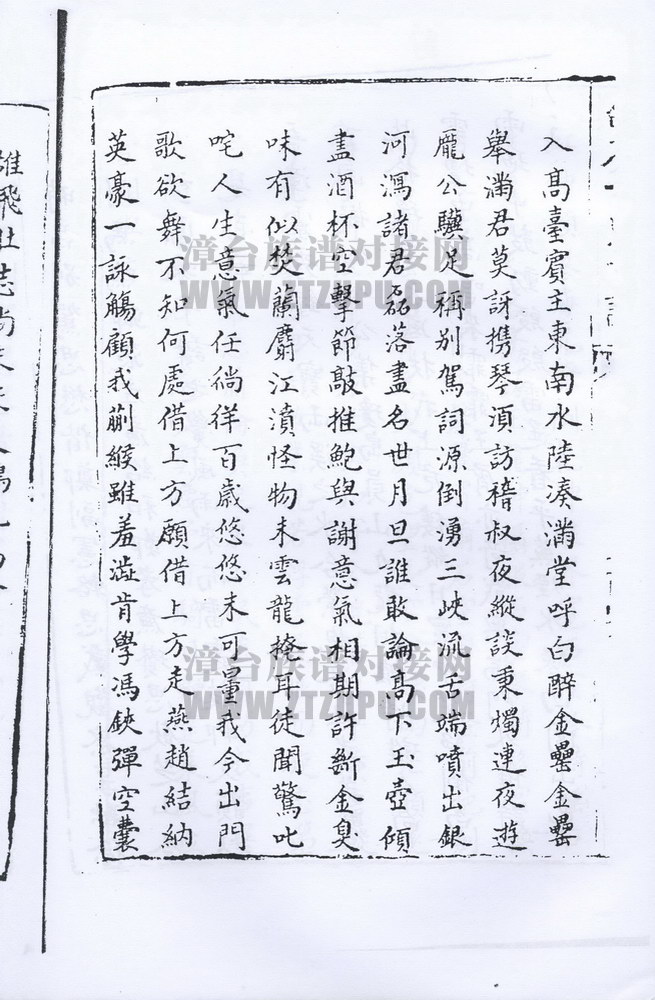 入高臺賓主東南水陸湊滿堂呼白醉金罍金罍
舉滿君莫訝携琴湏訪稽叔夜縱談秉燭連夜遊
龐公驥足稱別駕詞源倒湧三峽流舌端噴出銀
河瀉諸君磊落盡名世月旦誰敢論高下玉壺傾
盡酒杯空擊節敲推鮑與謝意氣相期許斷金臭
味有似焚蘭麝江濆怪物未雲龍掩耳徒聞驚叱
咤人生意氣任徜徉百歲悠悠未可量我今出門
歌欲舞不知何處借上方願借上方走燕趙結納
英豪一詠觴顧我蒯緱雖羞澁肯學馮鋏彈空囊
雄飛壯志尚
漳台族谱对接网
WWW.ZTZUPU.COM
漳台族谱对接网
WWW.ZTZUPU.COM